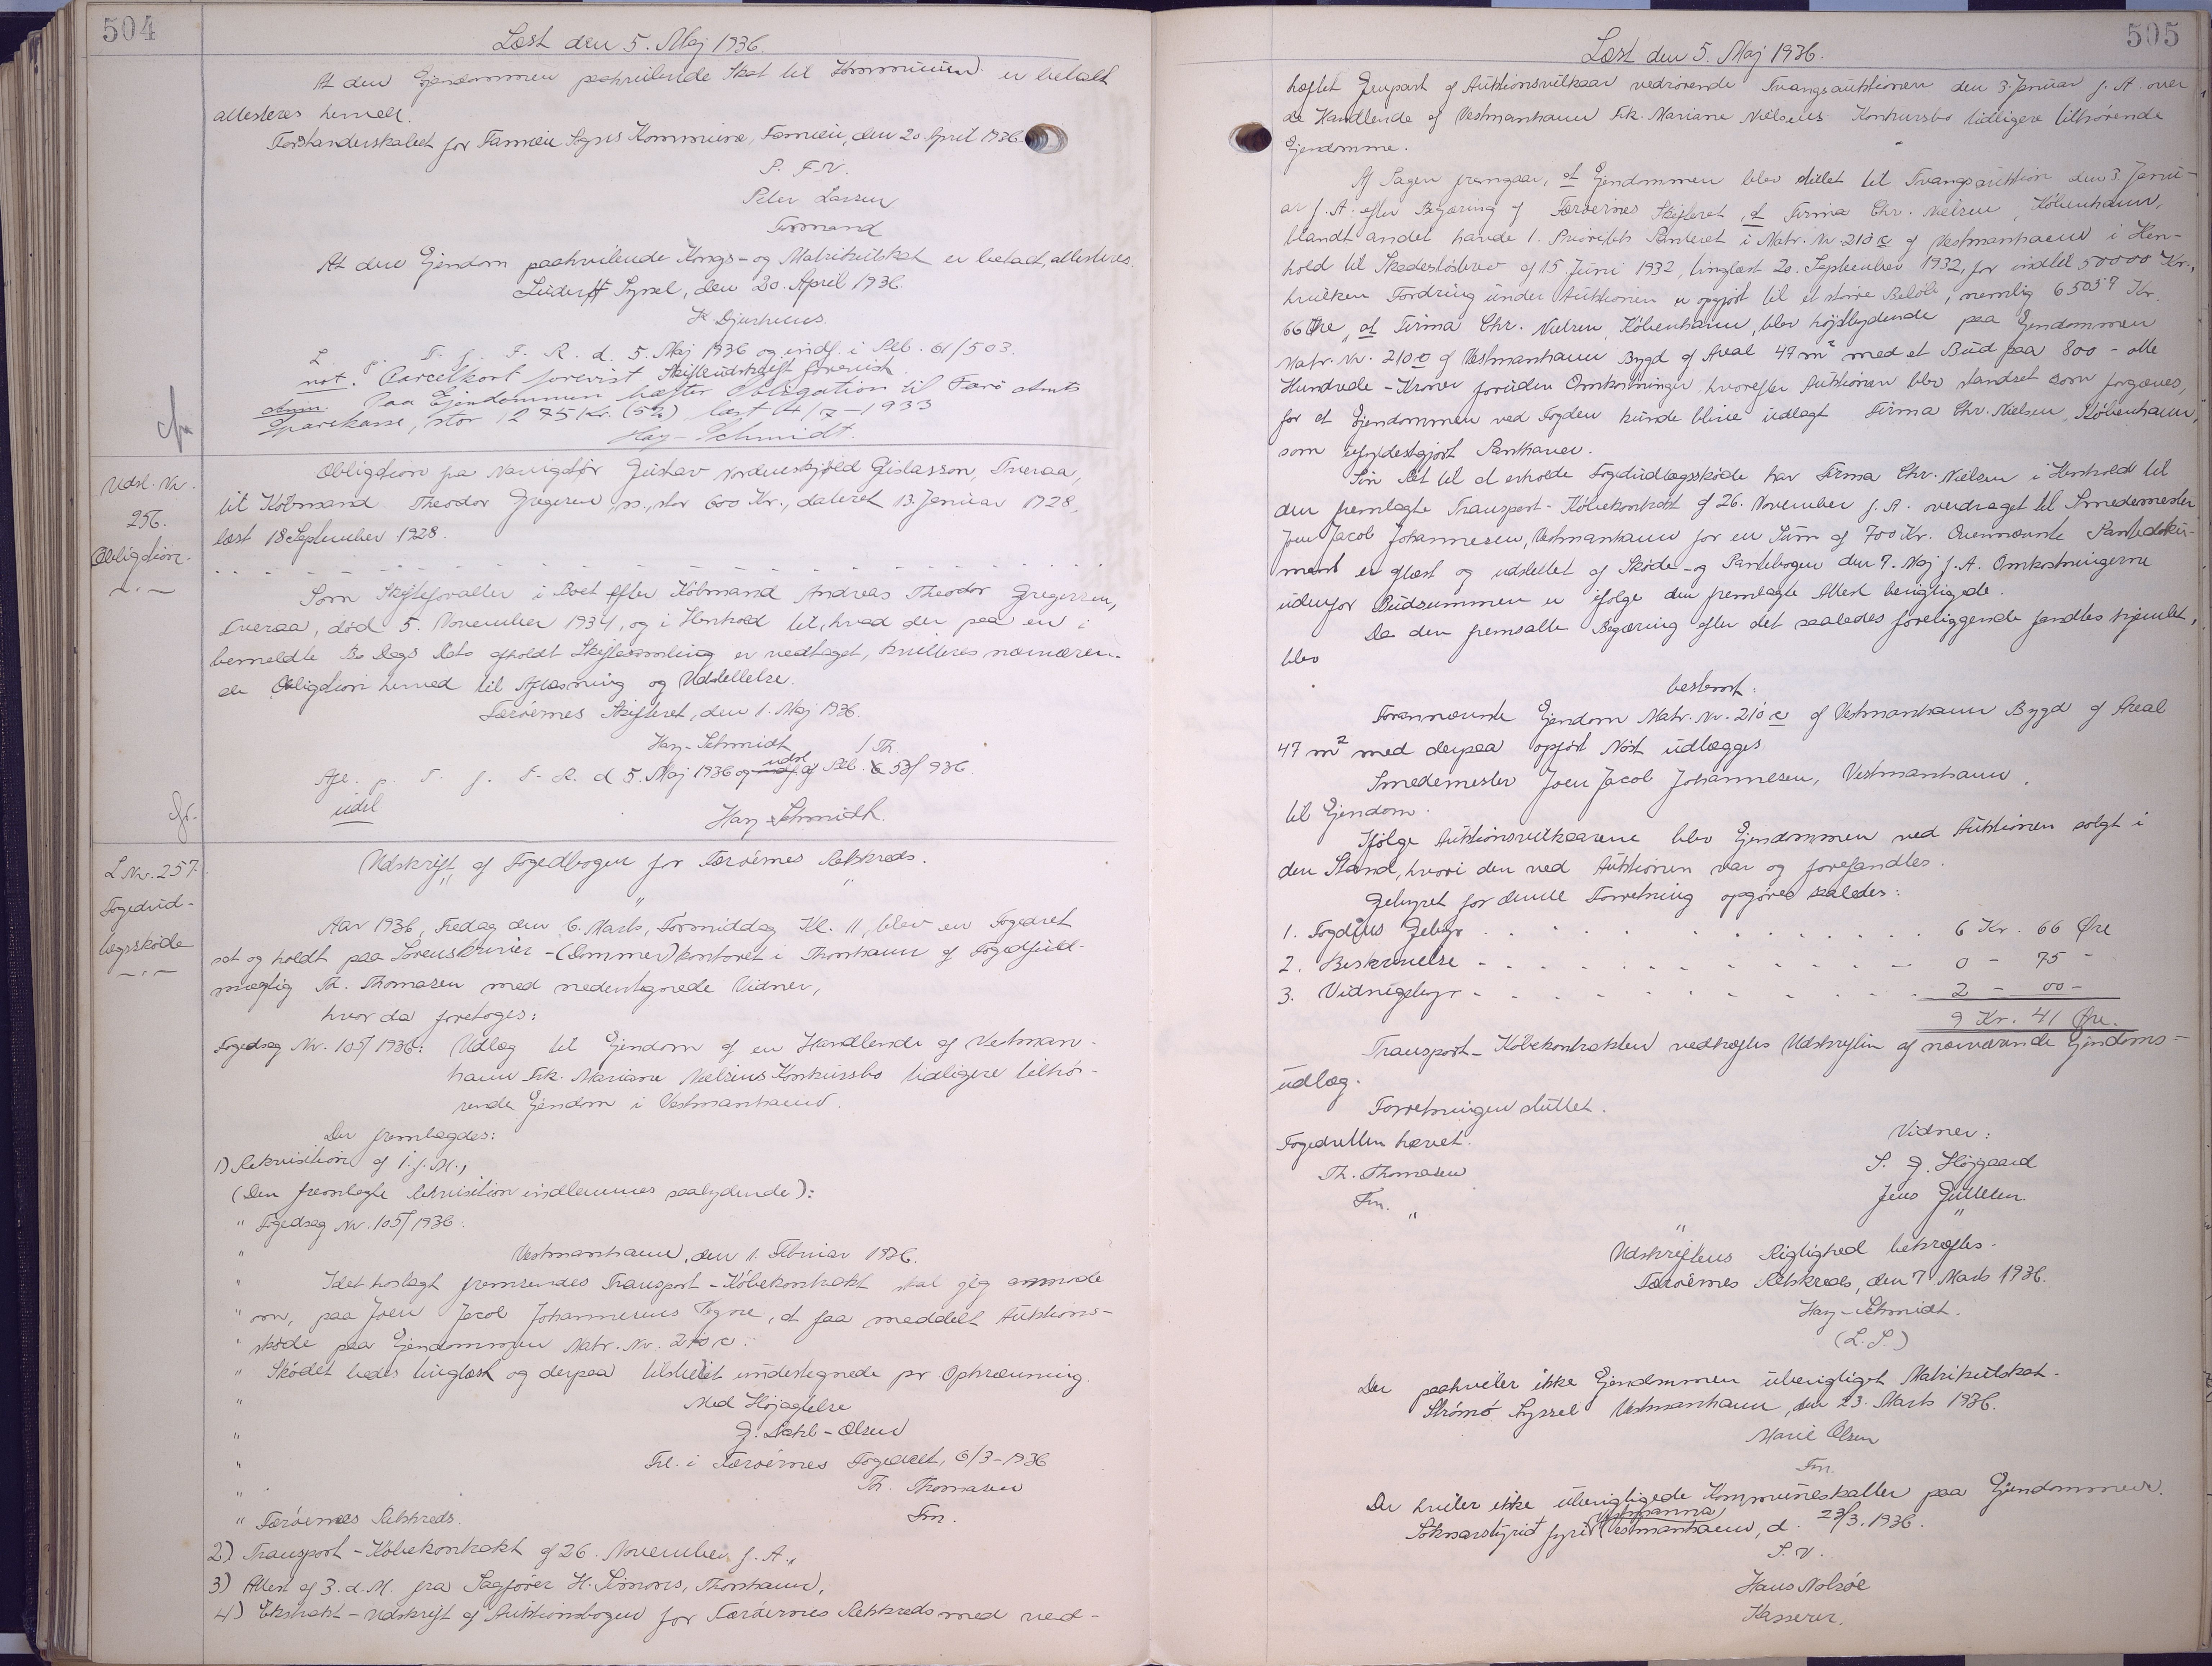 504
Læst den 5. Maj 1936.
At den Ejendommen paahvilende Skat til Kommunen er betalt
attesteres herved.
Forstanderskabet for Famien Sogns Kommune, Famien, den 20. April 1936
P. F. V.
Peter Larsen
Formand
At den Ejendom paahvilende Kongs- og Matrikulskat er betalt, attesteres.
Suderø Syssel, den 20. April 1936.
H. Djurhuus.
L. p. T. f. F. R. d. 5. Maj 1936 og indf. i Pb. 61/503.
not. Parcelkort forevist Skifteudskrift forevist
Anm. Paa Ejendommen hæfter Obligation til Færø Amts
Sparekasse, stor 1275 Kr. (5%) læst 4/7-1933
Hay-Schmidt.
Udsl. Nr.
256.
Obligation.
Obligation fra Navigatør Gustav Nordenskjöld Gislasson, Tveraa,
til Købmand Theodor Gregersen, ss., stor 600 Kr., dateret 13. Januar 1928,
læst 18 September 1928.
Som Skifteforvalter i Boet efter Købmand Andreas Theodor Gregersen,
Tveraa, død 5. November 1934, og i Henhold til, hvad der paa en i
bemeldte Bo Dags Dato afholdt Skiftesamling er vedtaget, kvitteres nærværen-
de Obligation herved til Aflæsning og Udslettelse.
Færøernes Skifteret, den 1. Maj 1936.
Hay-Schmidt
/Th.
Afl. p. T. f. F. R. d. 5. Maj 1936 og udsl af Pb. 53/936.
udsl
Hay-Schmidt.
L Nr. 257.
Fogedud-
lægsskøde
Udskrift af Fogedbogen for Færøernes Retskreds.
Aar 1936, Fredag den 6. Marts, Formiddag Kl. 11, blev en Fogedret
sat og holdt paa Sorenskriver-(Dommer)kontoret i Thorshavn af Fogedfuld-
mægtig Th. Thomasen med nedentegnede Vidner,
hvor da foretoges:
Fogedsag Nr. 105/1936: Udlæg til Ejendom af en Handlende af Vestman-
havn Frk. Mariane Nielsens Konkursbo tidligere tilhø-
rende Ejendom i Vestmanhavn.
Der fremlagdes:
1) Rekvisition af 1. f. M.,
(Den fremlagte Rekvisition indlemmes saalydende):
" Fogedsag Nr. 105/1936:
" Vestmanhavn, den 1. Februar 1936.
" Idet hoslagt fremsendes Transport-Købekontrakt skal jeg anmode
" om, paa Joen Jacob Johannesens Vegne, at faa meddelt Auktions-
" skøde paa Ejendommen Matr. Nr. 210 c.
" Skødet bedes tinglæst og derpaa tilstillet undertegnede pr Opkrævning.
" Med Højagtelse
" G. Dahl-Olsen
" Frl. i Færøernes Fogedret, 6/3-1936
" Th. Thomasen
" Færøernes Retskreds. Fm.
2) Transport-Købekontrakt af 26. November f. A.,
3) Attest af 3. d. M. fra Sagfører H. Simons, Thorshavn,
4) Ekstrakt-Udskrift af Auktionsbogen for Færøernes Retskreds med ved-
505
Læst den 5. Maj 1936.
hæftet Genpart af Auktionsvilkaar vedrørende Tvangsauktionen den 3. Januar f. A. over
de Handlende af Vestmanhavn Frk. Mariane Nielsens Konkursbo tidligere tilhørende
Ejendomme.
Af Sagen fremgaar, at Ejendommen blev stillet til Tvangsauktion den 3. Janu-
ar f. A. efter Begæring af Færøernes Skifteret, at Firma Chr. Nielsen, København,
blandt andet havde 1. Prioritets Panteret i Matr. Nr. 210 c af Vestmanhavn i Hen-
hold til Skadesløsbrev af 15. Juni 1932, tinglæst 20. September 1932, for indtil 50000 Kr.,
hvilken Fordring under Auktionen er opgjort til et større Beløb, nemlig 65059 Kr.
66 Øre, at Firma Chr. Nielsen, København, blev højstbydende paa Ejendommen
Matr. Nr. 210 c af Vestmanhavn Bygd af Areal 47 m² med et Bud paa 800 - otte
Hundrede - Kroner foruden Omkostninger, hvorefter Auktionen blev standset som forgæves,
for at Ejendommen ved Fogden kunde blive udlagt Firma Chr. Nielsen, København,
som ufyldestgjort Panthaver.
Sin Ret til at erholde Fogedudlægsskøde har Firma Chr. Nielsen i Henhold til
den fremlagte Transport-Købekontrakt af 26. November f. A. overdraget til Smedemester
Joen Jacob Johannesen, Vestmanhavn for en Sum af 700 Kr. Ovennævnte Pantedoku-
ment er aflæst og udslettet af Skøde- og Pantebogen den 7. Maj f. A. Omkostningerne
udenfor Budsummen er ifølge den fremlagte Attest berigtigede.
Da den fremsatte Begæring efter det saaledes foreliggende fandtes hjemlet,
blev
bestemt:
Forannævnte Ejendom Matr. Nr. 210 c af Vestmanhavn Bygd af Areal
47 m² med derpaa opført Nøst udlægges
Smedemester Joen Jacob Johannesen, Vestmanhavn,
til Ejendom.
Ifølge Auktionsvilkaarene blev Ejendommen ved Auktionen solgt i
den Stand, hvori den ved Auktionen var og forefandtes.
Gebyret for denne Forretning opgøres saaledes:
1. Fogdens Gebyr 6 Kr. 66 Øre
2. Beskrivelse 0 - 75 -
3. Vidnegebyr 2 - 00 -
9 Kr. 41 Øre.
Transport-Købekontrakten vedhæftes Udskriften af nærværende Ejendoms-
udlæg.
Forretningen sluttet.
Fogedretten hævet.
Vidner:
Th. Thomasen
S. J. Højgaard
Fm.
Jens Gullsten
Udskriftens Rigtighed bekræftes.
Færøernes Retskreds, den 7 Marts 1936.
Hay-Schmidt.
(L. S.)
Der paahviler ikke Ejendommen uberigtiget Matrikulskat.
Strømø Syssel Vestmanhavn, den 23. Marts 1936.
Marie Olsen
Fm.
Der hviler ikke uberigtigede Kommuneskatter paa Ejendommen.
Soknarstýrið fyri Vestmanhavn, d. 23/3. 1936.
P. V.
Hans Nolsøe
Kasserer.